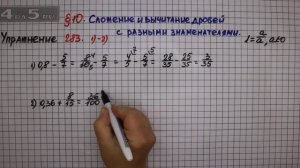 §10. Сложение и вычитание дробей
с разными знаменателями.
Упражнение 283. 1)-2)
1 = a/a, a≠0
1) 0,8 - 5/7 = 8/10 - 5/7 = 4/5 - 5/7 = 28/35 - 25/35 = 3/35
2) 0,36 + 8/15 = 36/100